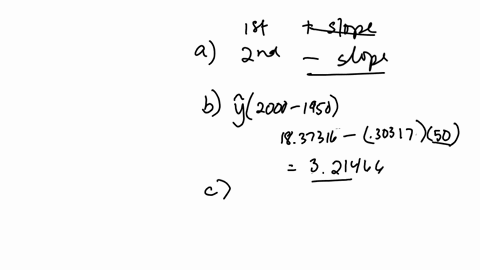 1st + slope
a) 2nd - slope
b) ŷ(2000-1950)
18.37316 - (.30317)(50)
= 3.21466
c)